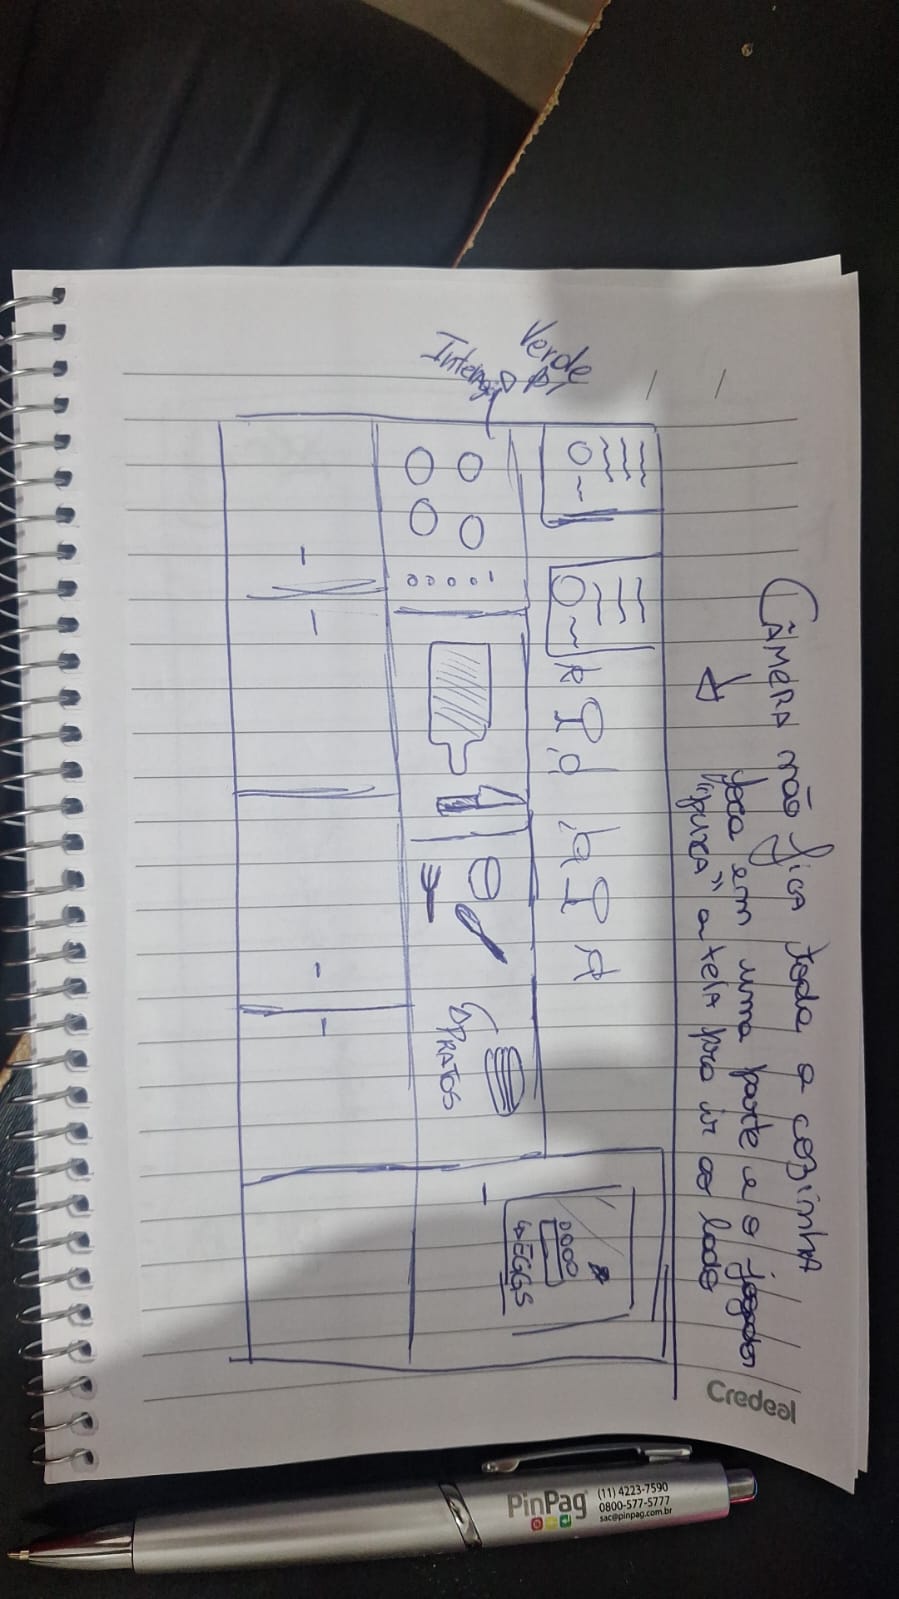 CÂMERA não fica toda a cozinha
foca em uma parte e o jogador
"puxa" a tela pra ir ao lado
Verde
EGGS
PRATOS
Credeal
PinPag
(11) 4223-7590
0800-577-5777
sac@pinpag.com.br